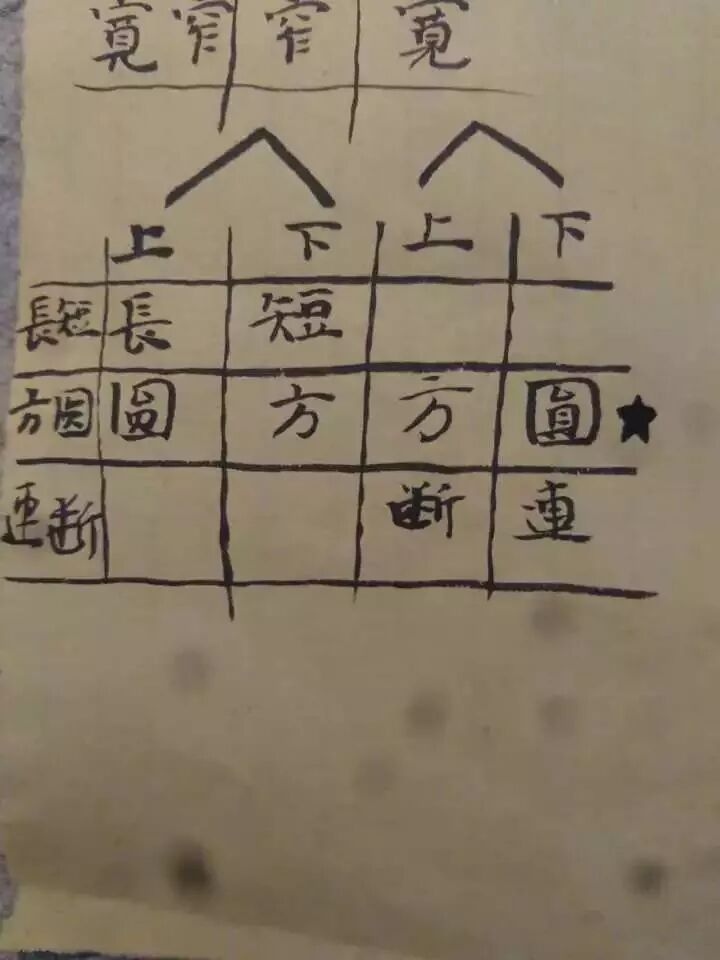 寬窄 窄 寬
上 下 上 下
長短 長 短
方圆 圓 方 方 圓 ★
連断 断 連